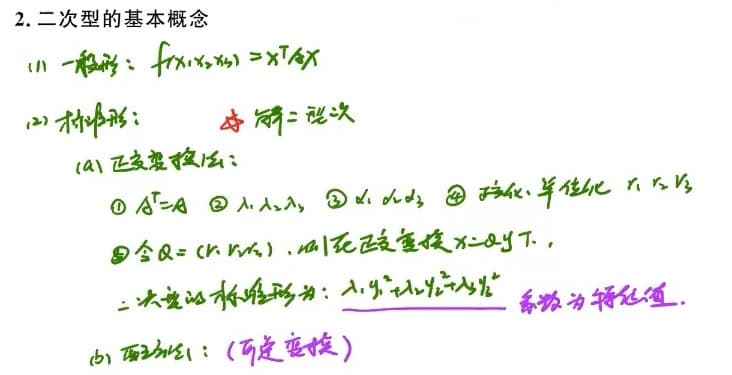 2. 二次型的基本概念
(1) 一般形：f(x₁x₂x₃) = xᵀAx
(2) 标准形：
(a) 正交变换法：
① Aᵀ=A ② λ₁λ₂λ₃ ③ α₁α₂α₃ ④ 正交化、单位化 r₁ r₂ r₃
⑤ 令Q = (r₁r₂r₃)，则在正交变换x=Qy下，
二次型的标准形为：λ₁y₁²+λ₂y₂²+λ₃y₃² 系数为特征值．
(b) 配方法：(可逆变换)